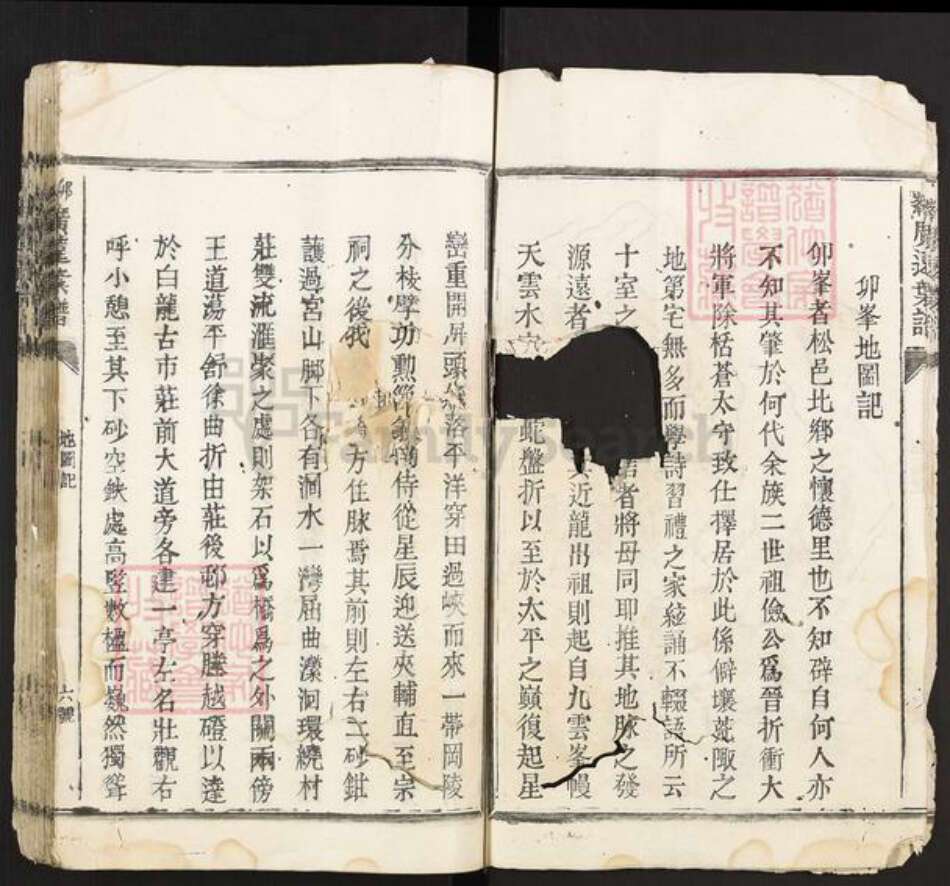 卯峯地圖記
卯峯者松邑北鄉之懷德里也不知辟自何人亦
不知其肇於何代余族二世祖儉公爲晉折衝大
將軍除栝蒼太守致仕擇居於此係僻壤荒陬之
地第宅無多而學詩習禮之家絃誦不輟語所云
十室之 者將母同耶推其地脉之發
源遠者 近龍出祖則起自九雲峯幔
天雲水 蛇盤折以至於太平之巔復起星
巒重開屏頭 落平洋穿田過峽而來一帶岡陵
分枝擘功勲 侍從星辰迎送夾輔直至宗
祠之後我 方住脉焉其前則左右二砂鉗
護過宮山脚下各有澗水一灣屈曲瀠洄環繞村
莊雙流滙聚之處則架石以爲橋爲之外關兩傍
王道蕩平舒徐曲折由莊後 方穿塍越磴以達
於白龍古市莊前大道旁各建一亭左名壯觀右
呼小憩至其下砂空缺處高竪數楹而巍然獨聳
地圖記
六號
FamilySearch